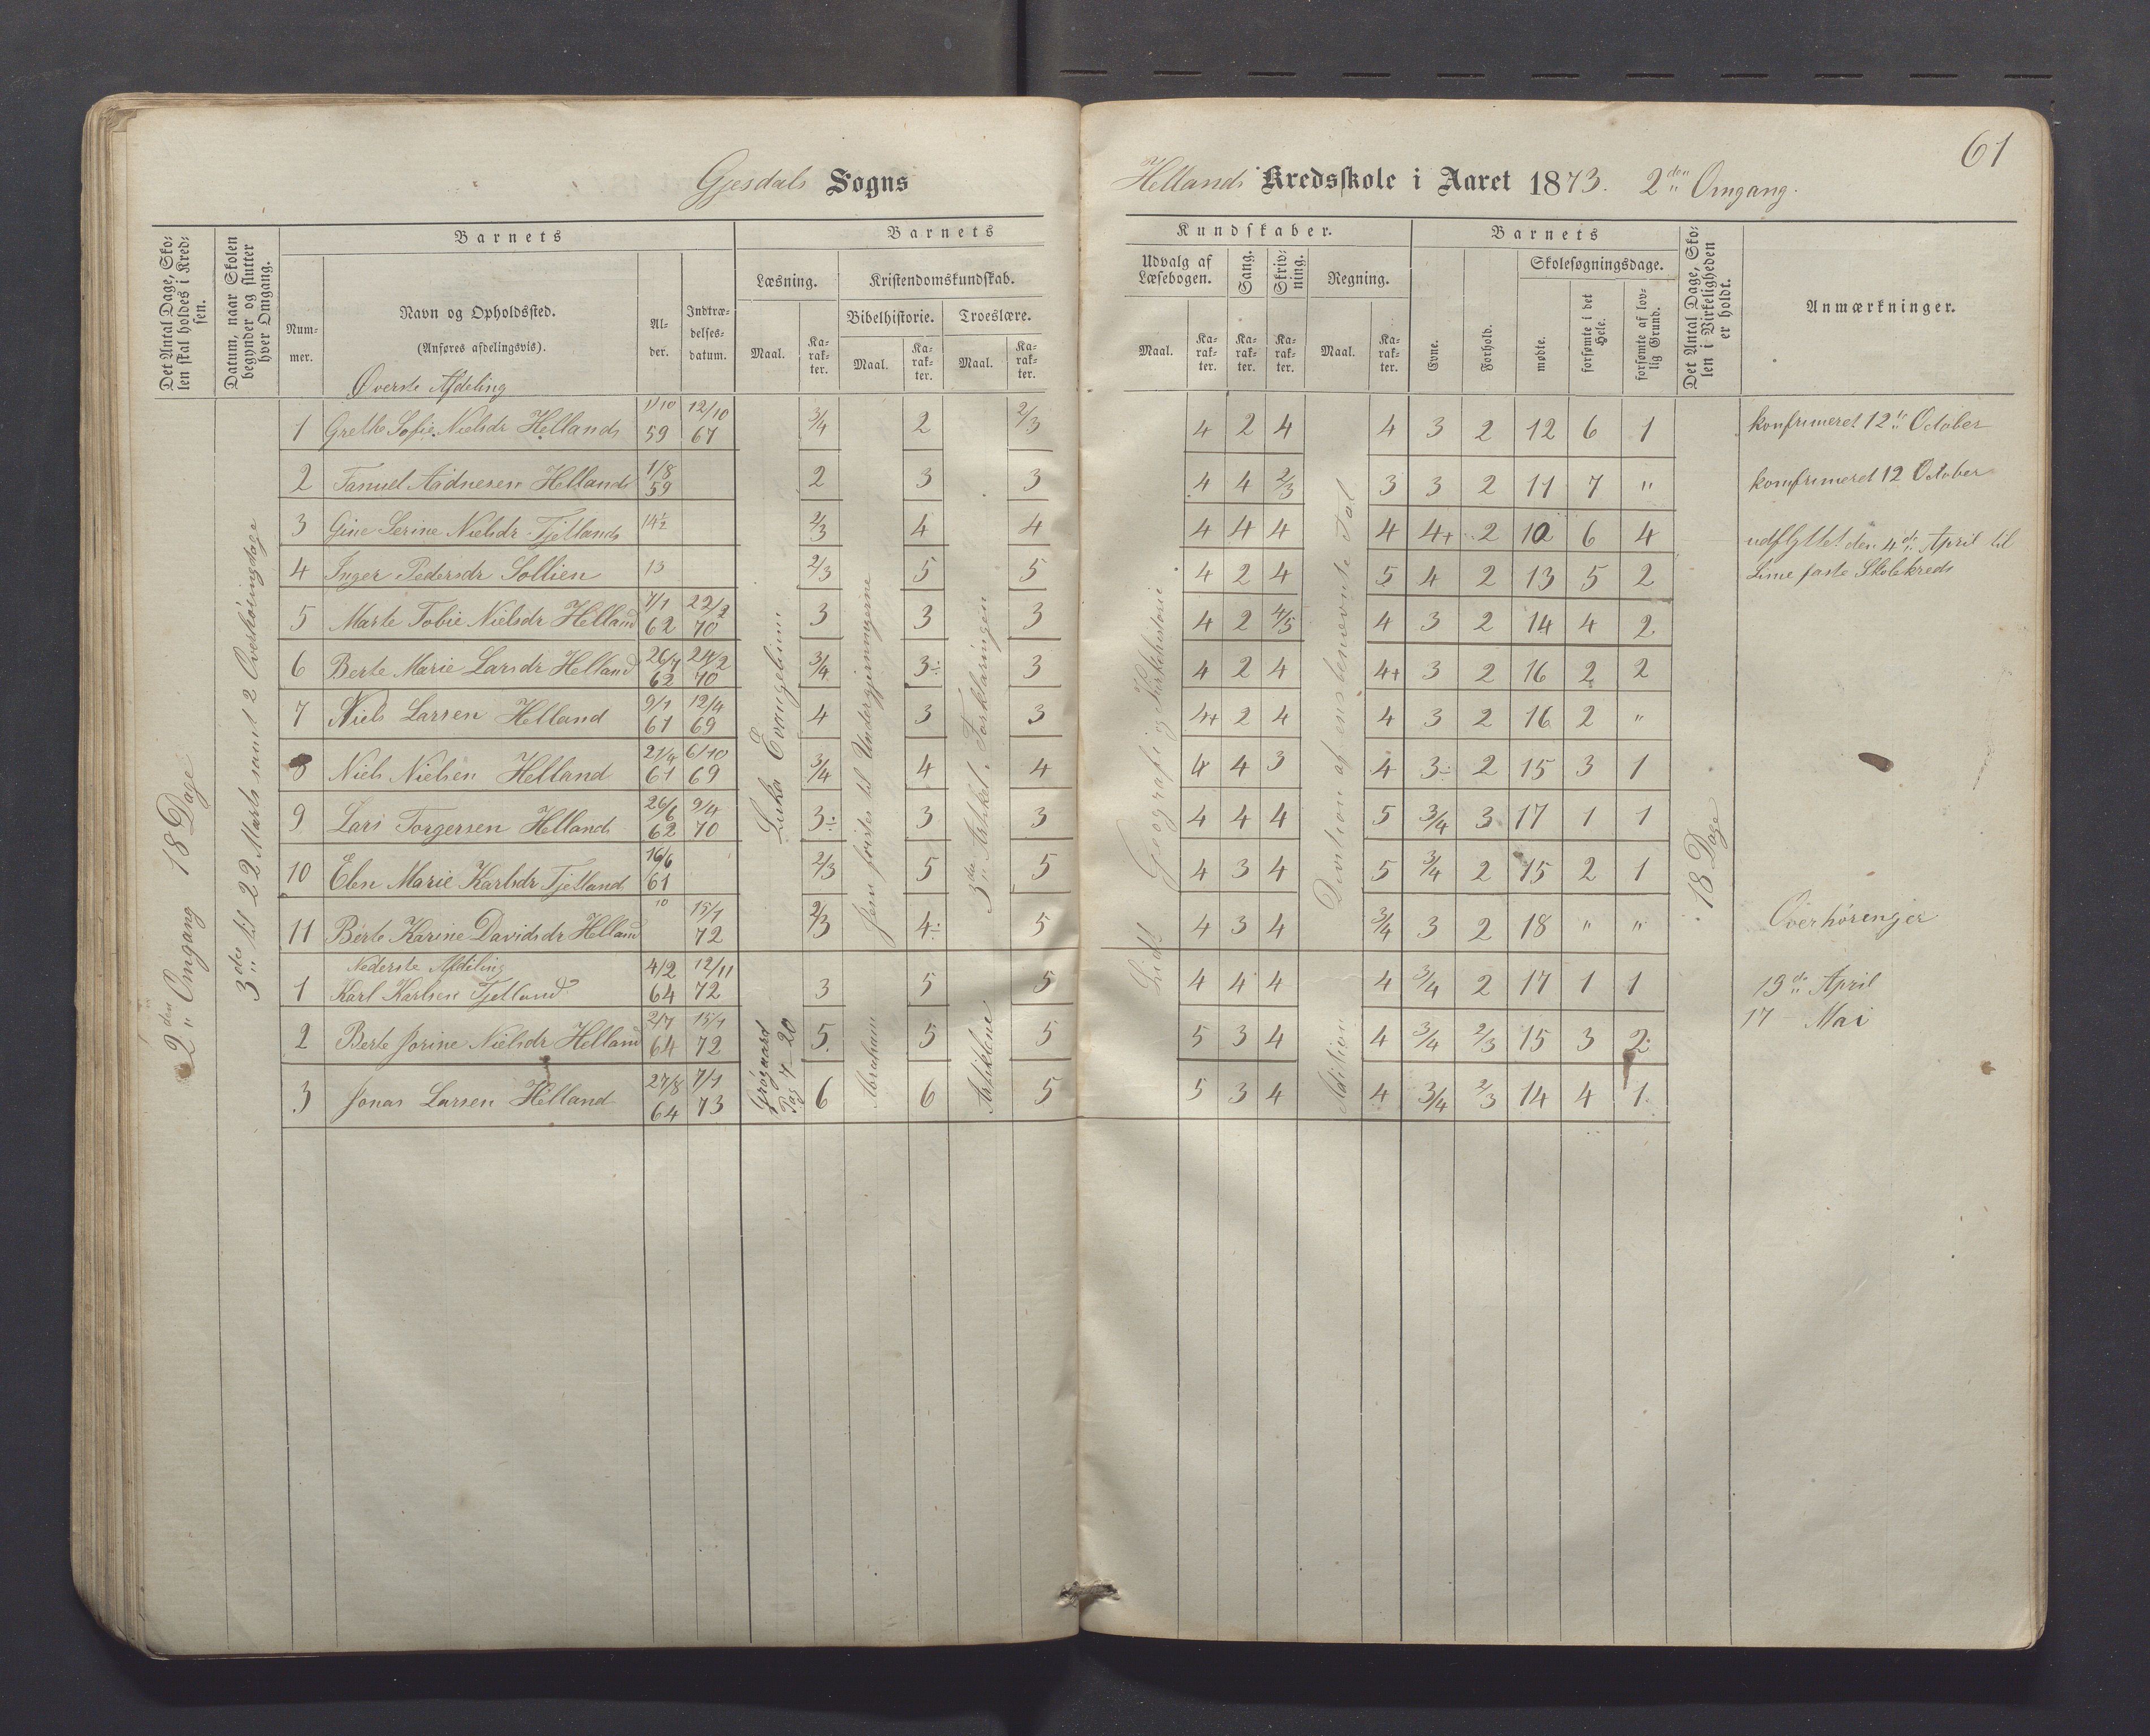 61
Gjesdals Sogns
Hellands Kredsskole i Aaret 1873. 2den Omgang.
Det Antal Dage, Sko-
len skal holdes i Kred-
sen.
Datum, naar Skolen
begynder og slutter
hver Omgang.
Barnets
Barnets
Kundskaber.
Barnets
Det Antal Dage, Sko-
len i Virkeligheden
er holdt.
Anmærkninger.
Num-
mer.
Navn og Opholdssted.
(Anføres afdelingsvis).
Al-
der.
Indtræ-
delses-
datum.
Læsning.
Kristendomskundskab.
Bibelhistorie.
Troeslære.
Udvalg af
Læsebogen.
Sang.
Skriv-
ning.
Regning.
Evne.
Forhold.
Skolesøgningsdage.
mødte.
forsømte i det
Hele.
forsømte af lov-
lig Grund.
Maal. Ka-
rak-
ter. Maal. Ka-
rak-
ter. Maal. Ka-
rak-
ter.
Maal. Ka-
rak-
ter. Ka-
rak-
ter. Ka-
rak-
ter. Maal. Ka-
rak-
ter.
2den Omgang 18 Dage
3die til 22 Marts samt 2 Overhøringsdage
Øverste Afdeling
1 Grethe Sofie Nielsdr Hellands 1/10 59 12/10 67 3/4 2 2/3 4 2 4 4 3 2 12 6 1 konfirmeret 12te October
2 Tanuel Aadnesen Hellands 1/8 59 2 3 3 4 4 2/3 3 3 2 11 7 " komfirmeret 12 October
3 Gine Serine Nielsdr Tjetlands 14½ 2/3 4 4 4 4 4 4 4+ 2 10 6 4 udflyttet den 4de April til
4 Inger Pedersdr Sollien 13 2/3 5 5 4 2 4 5 4 2 13 5 2 Lime faste Skolekreds
5 Marte Tobie Nielsdr Helland 7/1 62 22/2 70 3 3 3 4 2 4/5 4 3 2 14 4 2
6 Berte Marie Larsdr Helland 26/7 62 24/2 70 3/4 3÷ 3 4 2 4 4+ 3 2 16 2 2
7 Niels Larsen Helland 9/1 61 12/4 69 4 3 3 4+ 2 4 4 3 2 16 2 "
8 Niels Nielsen Helland 21/9 61 6/10 69 3/4 4 4 4 4 3 4 3÷ 2 15 3 1
9 Lars Torgersen Helland 26/6 62 9/4 70 3÷ 3 3 4 4 4 5 3/4 3 17 1 1
10 Elen Marie Karlsdr Tjetland 16/6 61 2/3 5 5 4 3 4 5 3/4 2 15 2 1
11 Berte Karine Davidsdr Helland 10 15/1 72 2/3 4÷ 5 4 3 4 3/4 3 2 18 " " Overhøringer
Nederste Afdeling
1 Karl Karlsen Tjetland 4/2 64 12/11 72 3 5 5 4 4 4 4 3/4 2 17 1 1 19de April
2 Berte Jorine Nielsdr Helland 2/7 64 15/1 72 5 5 5 5 3 4 4 3/4 2/3 15 3 2 17 — Mai
3 Jonas Larsen Helland 27/8 64 7/1 73 6 6 5 5 3 4 4 3/4 2/3 14 4 1
Luka Evangelium
Grøgaard
Pag 7—20
Jesu forster til Undergjerningerne
Abraham
3die Artikel. Forklaringen
Artiklene
Lidt Geografi og Kirkehistorie
Division af ensbenævnte Tal
Adition
18 Dage